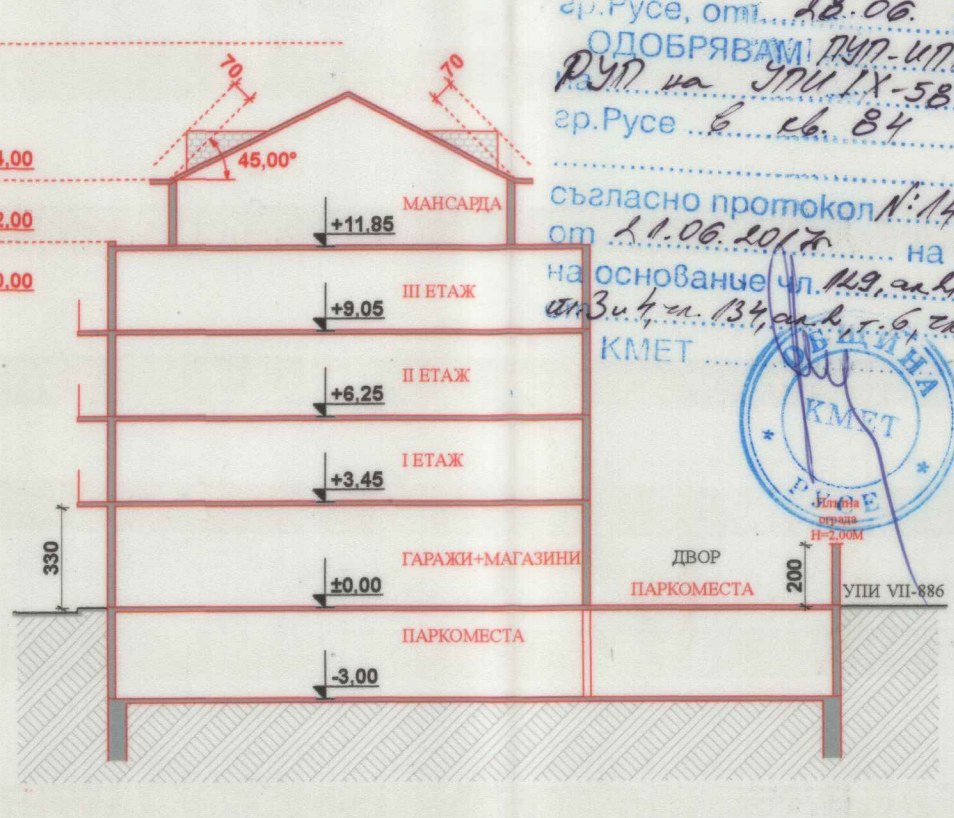 гр.Русе, от 28.06.
ОДОБРЯВАМ ПУП-ИП
на РУП на УПИ IX-58
гр.Русе в кв. 84
съгласно протокол №14
от 21.06.2017г. на
на основание чл. 129, ал.2,
3 и 4, чл. 134, ал.2, т.6,
КМЕТ
ОБЩИНА
КМЕТ
РУСЕ
70
70
45,00°
4,00
2,00
0,00
МАНСАРДА
+11,85
III ЕТАЖ
+9,05
II ЕТАЖ
+6,25
I ЕТАЖ
+3,45
330
ГАРАЖИ+МАГАЗИНИ
±0,00
ДВОР
ПАРКОМЕСТА
Плътна
ограда
H=2,00М
200
УПИ VII-886
ПАРКОМЕСТА
-3,00